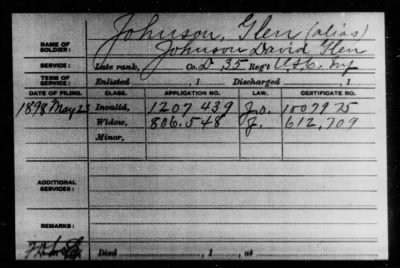 NAME OF SOLDIER: Johnson, Glen (alias)
Johnson David Glen
SERVICE: Late rank, Co. D. 35 Reg't U.S.C. Inf
TERM OF SERVICE: Enlisted , 1 Discharged , 1
DATE OF FILING. CLASS. APPLICATION NO. LAW. CERTIFICATE NO.
1898 May 2 Invalid, 1207439 1007975
Widow, 806.548 612,709
Minor,
ADDITIONAL SERVICES:
REMARKS:
Died , 1 , at